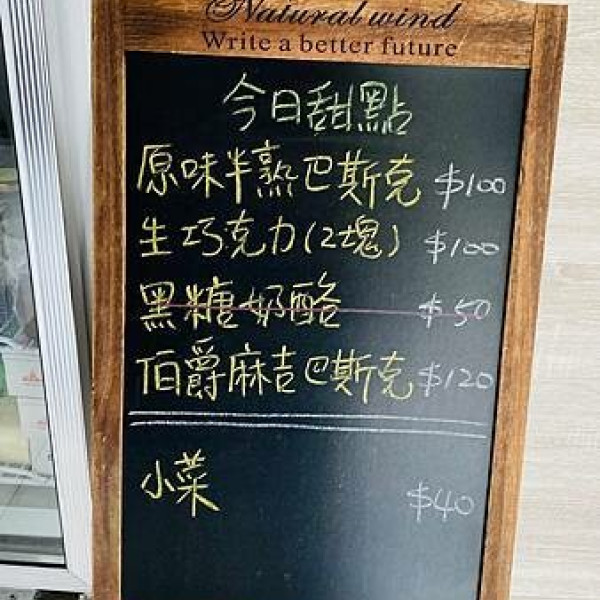 Natural wind
Write a better future
今日甜點
原味半熟巴斯克 $100
生巧克力(2塊) $100
黑糖奶酪 $50
伯爵麻吉巴斯克 $120
小菜 $40